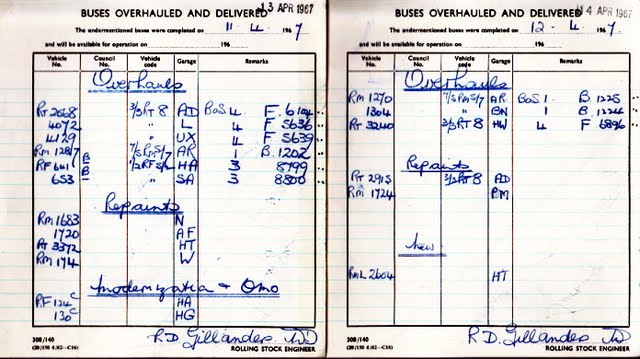 BUSES OVERHAULED AND DELIVERED 13 APR 1967
The undermentioned buses were completed on 11-4- 1967
and will be available for operation on 196
Vehicle No. Council No. Vehicle code Garage Remarks
Overhauls
RT 2668 3/3RT 8 AD BoS 4 F.
4072 " L 4 F 5636
4129 " UX 4 F 5639
RM 1287 7/5RM5/7 AR B.1202
RF 641 B HA 3 8799
653 B " SA 3 8800
Repaints
RM 1683 N
1720 AF
RT 3372 HT
RM 174 W
Modernization & Omo
RF 124c HA
130c HG
R.D. Gillanders
308/140
(20/150 6/62—C16)
ROLLING STOCK ENGINEER
BUSES OVERHAULED AND DELIVERED 14 APR 1967
The undermentioned buses were completed on 12-4- 1967.
and will be available for operation on 196
Vehicle No. Council No. Vehicle code Garage Remarks
Overhauls
RM 1270 7/5RM5/7 AR BoS 1 B.1225
1304 " BN 1 B.1224
RT 3240 3/3RT 8 HW 4 F 6896
Repaints
RT 2915 3/3RT 8 AD
RM 1724 RM
New
RML 2604 HT
R.D. Gillanders
308/140
(20/150 6/62—C16)
ROLLING STOCK ENGINEER